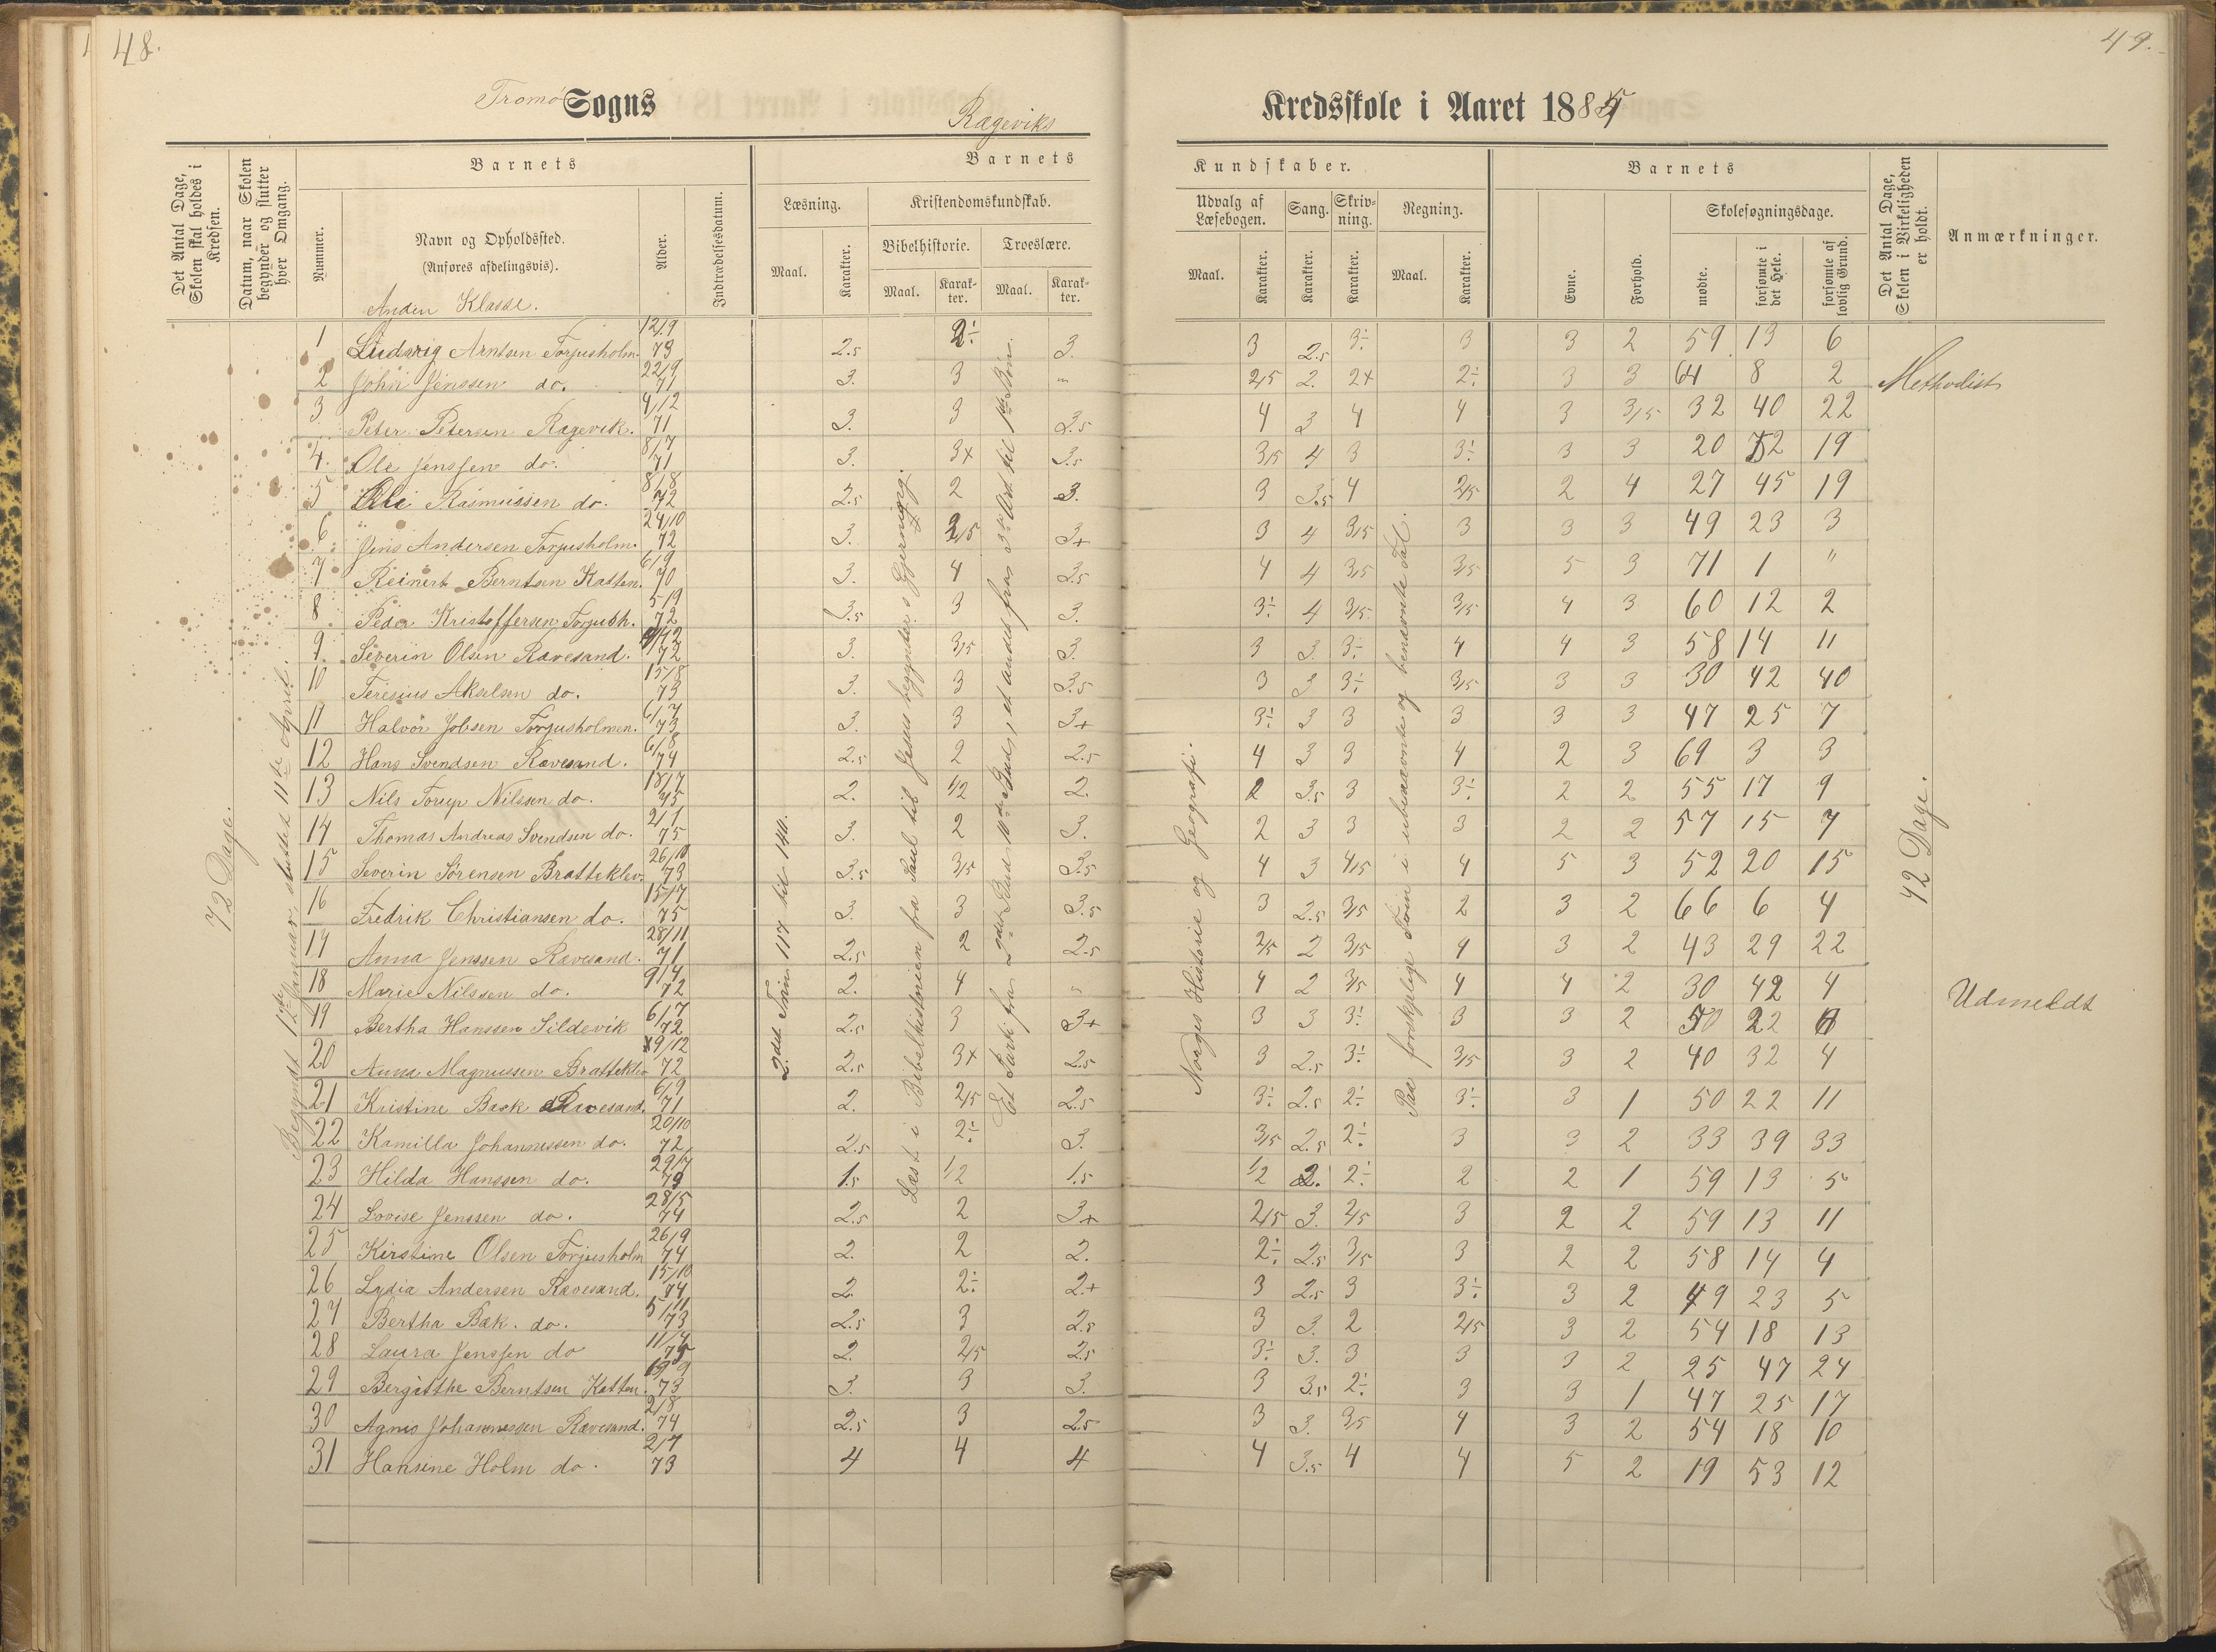 48.
49.
Tromø Sogns
Rægeviks
Kredsskole i Aaret 1885
Det Antal Dage, Skolen skal holdes i Kredsen.
Datum, naar Skolen begynder og slutter hver Omgang.
Barnets
Nummer.
Navn og Opholdssted.
(Anføres afdelingsvis).
Anden Klasse.
Alder.
Indtrædelsesdatum.
Barnets
Læsning.
Maal.
Karakter.
Kristendomskundskab.
Bibelhistorie.
Maal.
Karakter.
Troeslære.
Maal.
Karakter.
Kundskaber.
Udvalg af Læsebogen.
Maal.
Karakter.
Sang.
Karakter.
Skrivning.
Karakter.
Regning.
Maal.
Karakter.
Barnets
Evne.
Forhold.
Skolesøgningsdage.
mødte.
forsømte i det Hele.
forsømte af lovlig Grund.
Det Antal Dage, Skolen i Virkeligheden er holdt.
Anmærkninger.
72 Dage.
Begyndt 12te Januar, sluttet 11te April.
2den Trin 117 til 140.
Læst i Bibelhistorien fra Saul til Jesus begynder s. Gjerning.
Et Parti fra
Norges Historie og Geografi.
Paa forskjelige Trin i ubenævnte og benævnte Tal.
72 Dage.
1 Ludvig Arntsen Torjusholm. 12/9 73 2.5 2÷ 3. 3 2.5 3÷ 3 3 2 59 13 6
2 John Jenssen do. 22/9 71 3. 3 " 2/5 2. 2+ 2÷ 3 3 64 8 2 Methodist
3 Peter Petersen Rægevik. 4/12 71 3. 3 2.5 4 3 4 4 3 3/5 32 40 22
4. Ole Jenssen do. 8/7 71 3. 3+ 3.5 3/5 4 3 3÷ 3 3 20 52 19
5 Ole Rasmussen do. 8/8 72 2.5 2 3. 3 3.5 4 2/5 2 4 27 45 19
6 Jens Andersen Torjusholm. 24/10 72 3. 3/5 3+ 3 4 3/5 3 3 3 49 23 3
7 Reinert Berntsen Katten. 6/9 70 3. 4 3.5 4 4 3/5 3/5 5 3 71 1 "
8 Peder Kristoffersen Torjush. 5/9 72 3.5 3 3. 3÷ 4 3/5 3/5 4 3 60 12 2
9. Severin Olsen Rævesand. 72 3. 3/5 3. 3 3. 3÷ 4 4 3 58 14 11
10 Teresius Akselsen do. 15/8 73 3. 3 3.5 3 3 3÷ 3/5 3 3 30 42 40
11 Halvor Jobsen Torjusholmen. 6/7 73 3. 3 3+ 3÷ 3 3 3 3 3 47 25 7
12 Hans Svendsen Rævesand. 6/8 74 2.5 2 2.5 4 3 3 4 2 3 69 3 3
13 Nils Torup Nilssen do. 18/7 75 2. 1/2 2. 2 3.5 3 3÷ 2 2 55 17 9
14 Thomas Andreas Svendsen do. 2/1 75 3. 2 3. 2 3 3 3 2 2 57 15 7
15 Severin Sørensen Bratteklev. 26/10 73 3.5 3/5 3.5 4 3 4/5 4 5 3 52 20 15
16 Fredrik Christiansen do. 15/7 75 3. 3 3.5 3 2.5 3/5 2 3 2 66 6 4
17 Anna Jenssen Rævesand. 28/11 71 2.5 2 2.5 2/5 2 3/5 4 3 2 43 29 22
18 Marie Nilssen do. 9/4 72 2. 4 " 4 2 3/5 4 4 2 30 42 4 Udmeldt
19 Bertha Hanssen Sildevik 6/7 72 2.5 3 3+ 3 3 3÷ 3 3 2 50 22
20 Anna Magnussen Bratteklev 19/12 72 2.5 3+ 2.5 3 2.5 3÷ 3/5 3 2 40 32 4
21 Kristine Bæk Rævesand. 6/9 71 2. 2/5 2.5 3÷ 2.5 2÷ 3÷ 3 1 50 22 11
22 Kamilla Johannessen do. 20/10 72 2.5 2÷ 3. 3/5 2.5 2÷ 3 3 2 33 39 33
23 Hilda Hanssen do. 29/7 73 1.5 1/2 1.5 1/2 2. 2÷ 2 2 1 59 13 5
24 Lovise Jenssen do. 28/5 74 2.5 2 3+ 2/5 3. 2/5 3 2 2 59 13 11
25 Kirstine Olsen Torjusholm 26/9 74 2. 2 2. 2÷ 2.5 3/5 3 2 2 58 14 4
26 Lydia Andersen Rævesand. 15/10 74 2. 2÷ 2+ 3 2.5 3 3÷ 3 2 49 23 5
27 Bertha Bæk. do. 5/11 73 2.5 3 2.5 3 3. 2 2/5 3 2 54 18 13
28 Laura Jenssen do 11/4 75 2. 2/5 2.5 3÷ 3. 3 3 3 2 25 47 24
29 Bergitthe Berntsen Katten. 73 3. 3 3. 3 3.5 2÷ 3 3 1 47 25 17
30 Agnes Johannessen Rævesand. 2/8 74 2.5 3 2.5 3 3. 3/5 4 3 2 54 18 10
31 Hansine Holm do. 2/7 73 4 4 4 4 3.5 4 4 5 2 19 53 12